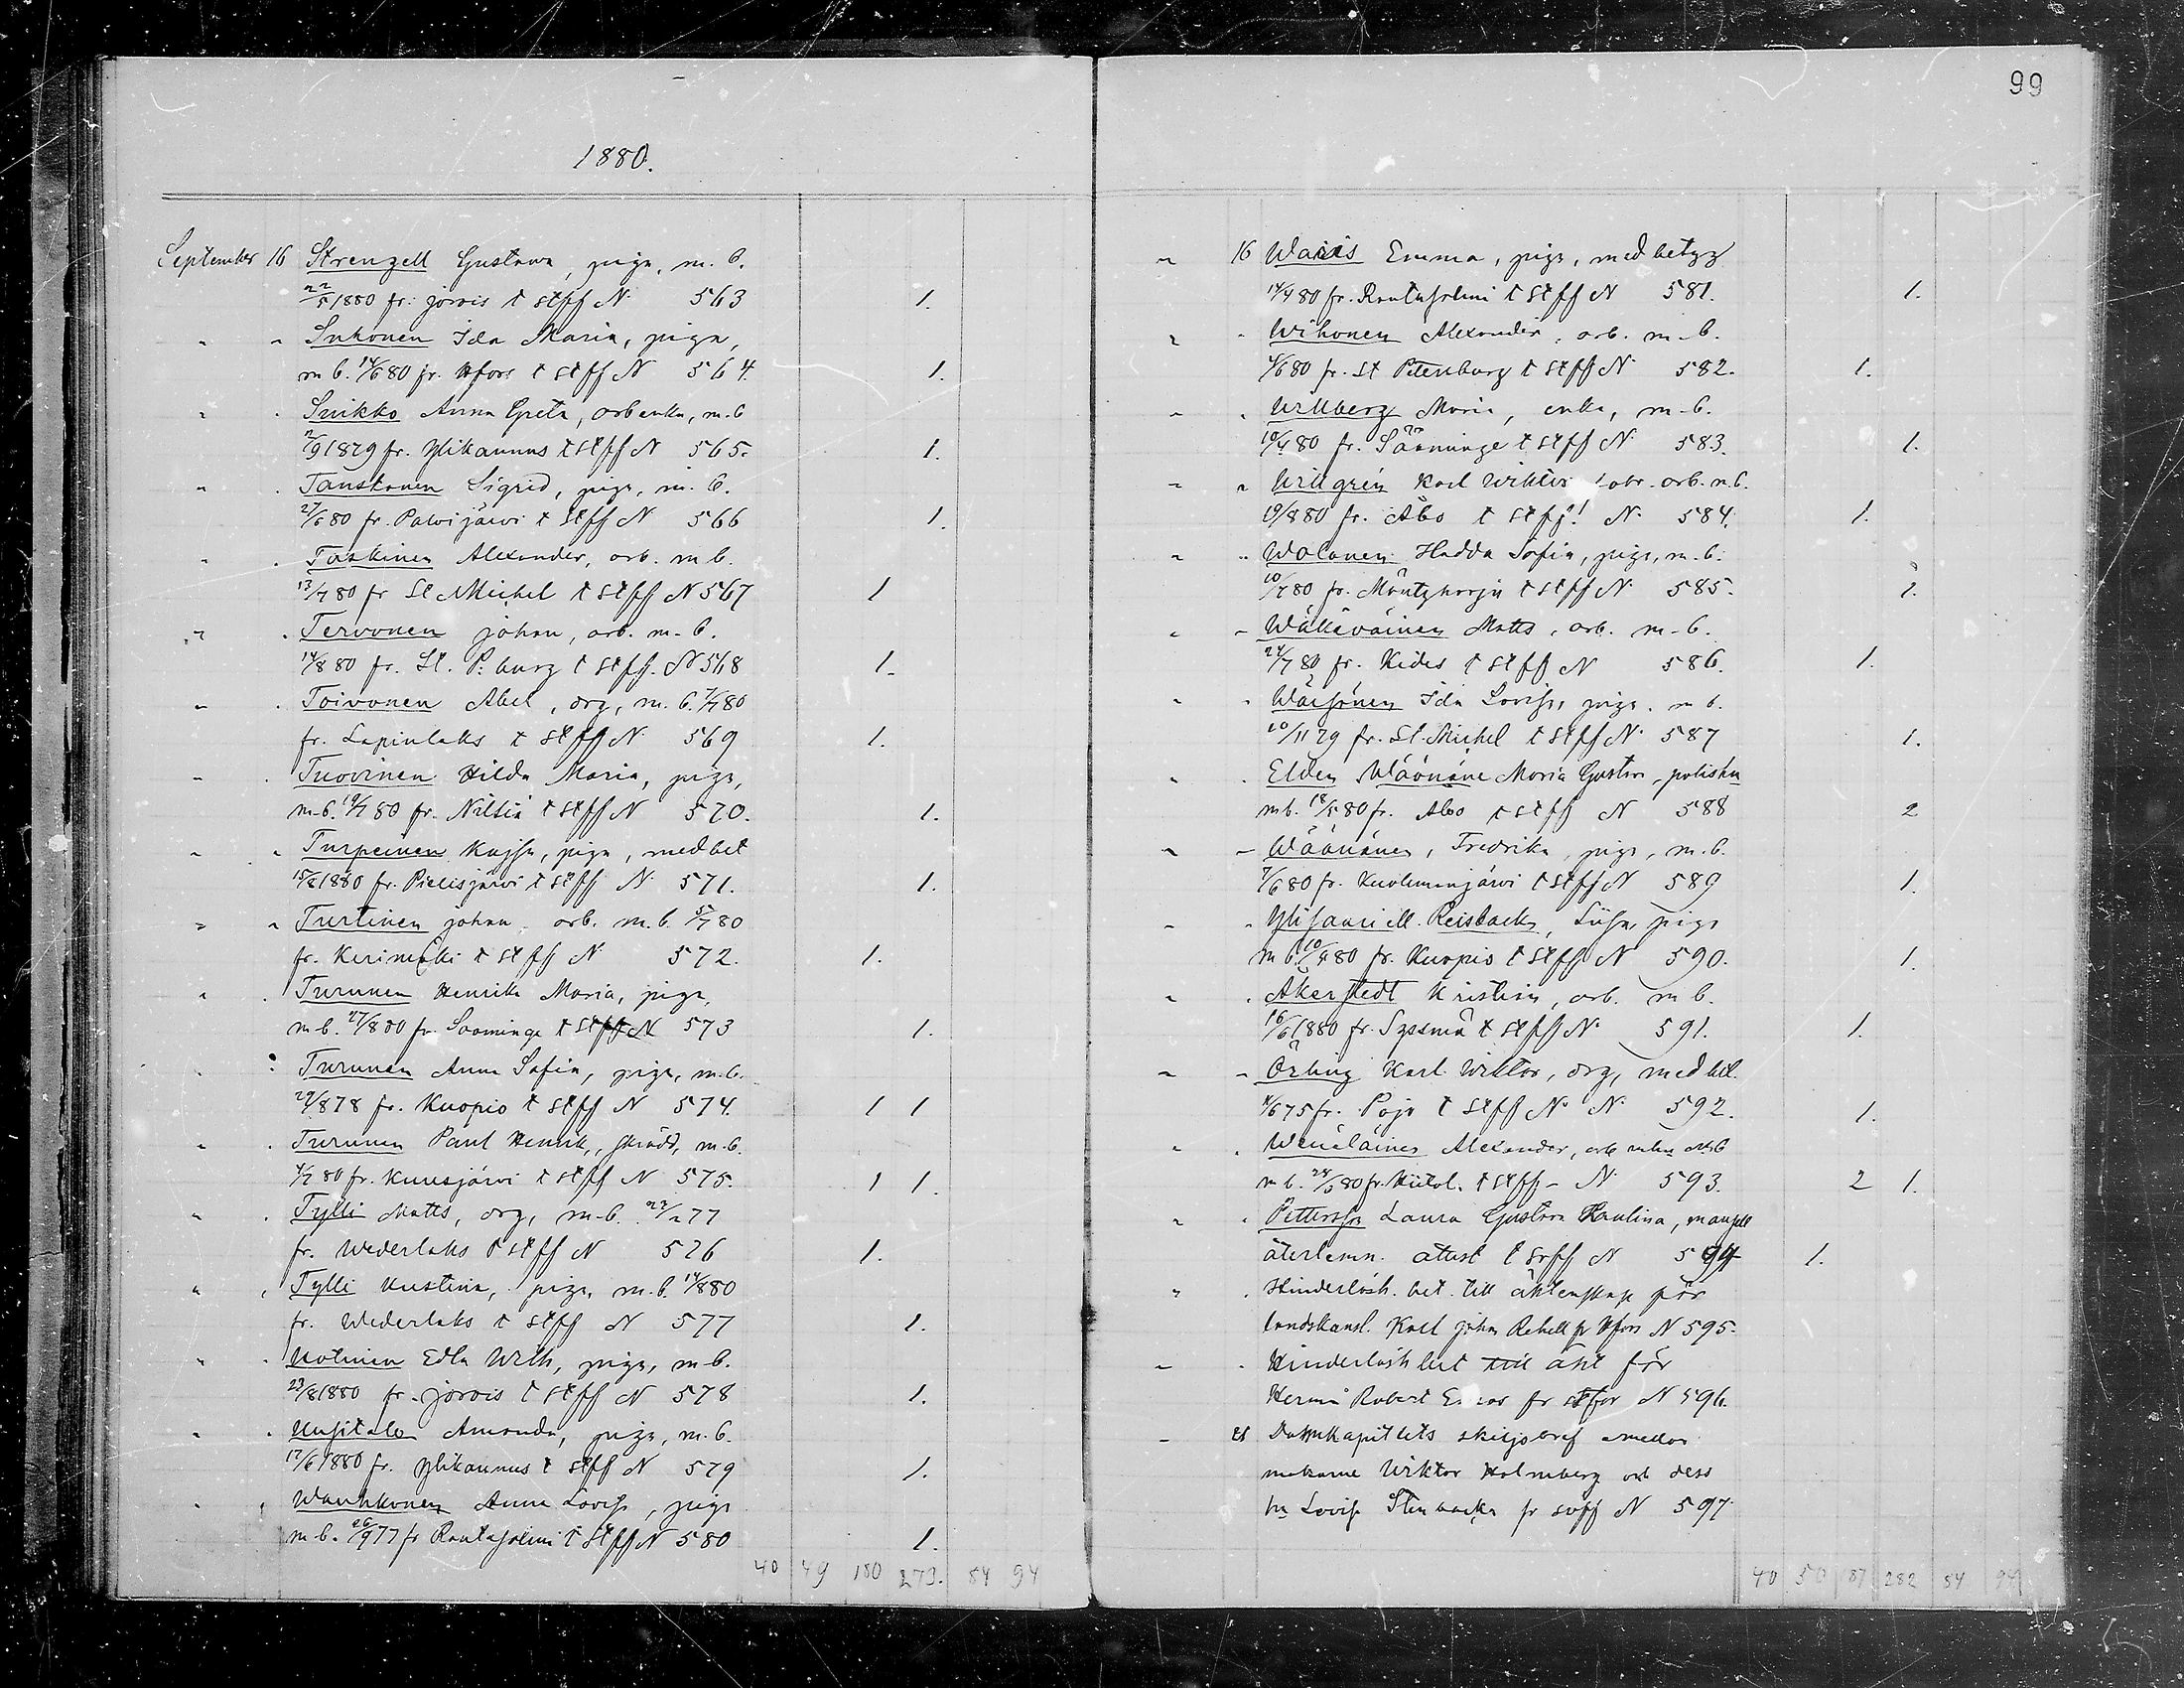 99
1880.
September 16 Strenzell Gustava, piga, m. b.
22/5 1880 fr. Jorois t Stff N 563 1.
" " Suhonen Ida Maria, piga,
m b. 14/6 80 fr. Hfors t Stff N 564. 1.
" " Suikko Anna Greta, arb enka, m. b
2/9 1879 fr. Ylikannus t Stff N 565. 1.
" " Tanskanen Sigrid, piga, m. b.
27/6 80 fr. Palvijärvi t Stff N 566 1.
" " Taskinen Alexander, arb. m b.
13/7 80 fr St Michel t Stff N 567 1
" " Tervonen Johan, arb. m. b.
14/8 80 fr. St. P:burg t Stff. N 568 1.
" " Toivonen Abel, drg, m. b. 7/7 80
fr. Lapinlaks t Stff N 569 1.
" " Tuovinen Hilda Maria, piga,
m. b. 19/7 80 fr. Nilsiä t Stff N 570. 1.
" " Turpeinen Kajsa, piga, med bet
15/8 1880 fr. Pielisjärvi t Stff N 571. 1.
" " Turtinen Johan, arb. m. b. 5/7 80
fr. Kerimäki t Stff N 572. 1.
" " Turunen Henrika Maria, piga,
m. b. 27/8 80 fr. Sääminge t Stff N 573 1.
" " Turunen Anna Sofia, piga, m. b.
29/8 78 fr. Kuopio t Stff N 574. 1 1
" " Turunen Paul Henrik, skrädd, m. b.
4/7 80 fr. Kuusjärvi t Stff N 575. 1 1.
" " Tylli Matts, drg, m. b. 22/2 77
fr. Wederlaks t Stff N 576 1.
" " Tylli Kustina, piga, m. b. 14/8 80
fr. Wederlaks t Stff N 577 1.
" " Uotinen Edla Wilh, piga, m b.
23/8 1880 fr. Jorois t Stff N 578 1.
" " Uusitalo Amanda, piga, m. b.
17/6 1880 fr. Ylikannus t Stff N 579 1.
" " Wanhkonen Anna Lovisa, piga
m b. 26/9 77 fr Rautasalmi t Stff N 580 1.
40 49 180 273. 84 94
" 16 Waris Emma, piga, med betyg
14/4 80 fr. Rautasalmi t Stff N 581. 1.
" " Wihonen Alexander, arb. m. b.
4/6 80 fr. St Petersburg t Stff N 582. 1.
" " Willberg Maria, enka, m. b.
10/4 80 fr. Sääminge t Stff N 583. 1.
" " Willgrén Karl Wiktor, arb. m. b.
19/8 80 fr. Åbo t Stff! N 584. 1.
" " Wolanen Hedda Sofia, piga, m. b.
10/7 80 fr. Mäntyharju t Stff N 585. 1.
" " Wäkeväinen Matts, arb. m. b.
24/7 80 fr. Kides t Stff N 586. 1.
" " Wäisänen Ida Lovisa, piga, m b.
20/11 79 fr. St. Michel t Stff N 587 1.
" " Elden Wäänäne Maria Gustava, poliskn
m b. 18/5 80 fr. Åbo t Stff N 588 2
" " Wäänänen, Fredrika, piga, m. b.
7/6 80 fr. Kuolemanjärvi t Stff N 589 1.
" " Ylisaari ell. Reisbacka, Liisa, piga
m b 10/4 80 fr. Kuopio t Stff N 590. 1.
" " Åkerstedt Kristian, arb. m b.
16/6 1880 fr. Sysmä t Stff N 591. 1.
" " Örling Karl Wiktor, drg, med bet.
4/6 75 fr. Pojo t Stff N N 592. 1.
" " Wenäläinen Alexander, arb
m b. 24/3 80 fr. Hiitol. t Stff - N 593. 2 1.
" " Pettersson Laura Gustava Paulina, mamsell
återlemn. attest t Stff N 594 1.
" " Hinderlösh. bet. till äktenskap för
landskansl. Karl Johan Rehell fr Hfors N 595.
" " Hinderlösh bet till äkt för
Herman Robert fr Stfor N 596.
" 21 Domkapitlets skiljobref emellan
makarne Wiktor Holmberg och dess
h:u Lovisa Stenbacka fr Stff N 597
40 50 187 282 84 94